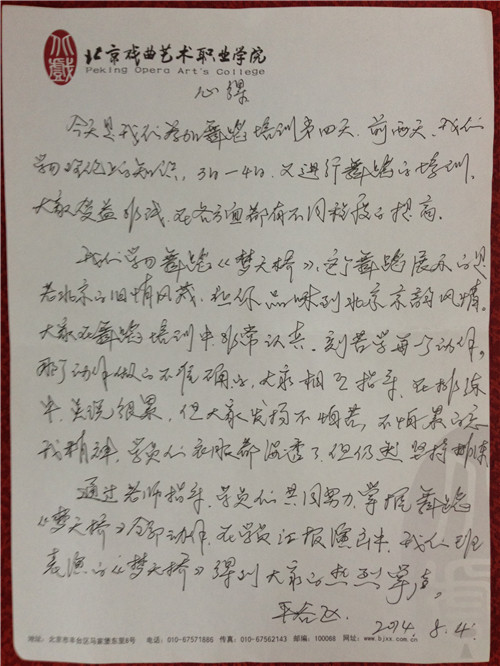 北戏
北京戏曲艺术职业学院
Peking Opera Art's College
心得
今天是我们参加舞蹈培训第四天,前两天,我们
学习理论上的知识,3日—4日,又进行舞蹈的培训,
大家受益非浅,在各方面都有不同程度的提高。
我们学习舞蹈《梦天桥》,这个舞蹈展示的是
老北京的旧情风貌,让你品味到北京京韵风情。
大家在舞蹈培训中非常认真,刻苦学每个动作,
那个动作做的不准确的,大家相互指导,在排练
中,虽说很累,但大家发扬不怕苦,不怕累的忘
我精神,学员们衣服都湿透了,但仍然坚持排练
通过老师指导,学员们共同努力,掌握舞蹈
《梦天桥》全部动作,在学员汇报演出中,我们班
表演的《梦天桥》得到大家的热烈掌声。
2014.8.4.
地址:北京市丰台区马家堡东里8号 电话:010-67571886 传真:010-67562143 邮编:100068 网址:www.bjxx.com.cn